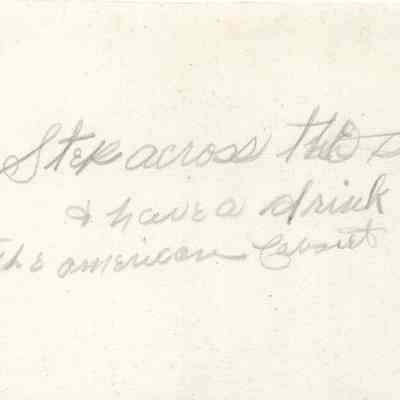 Step across the
& have a drink
the american Cabaret